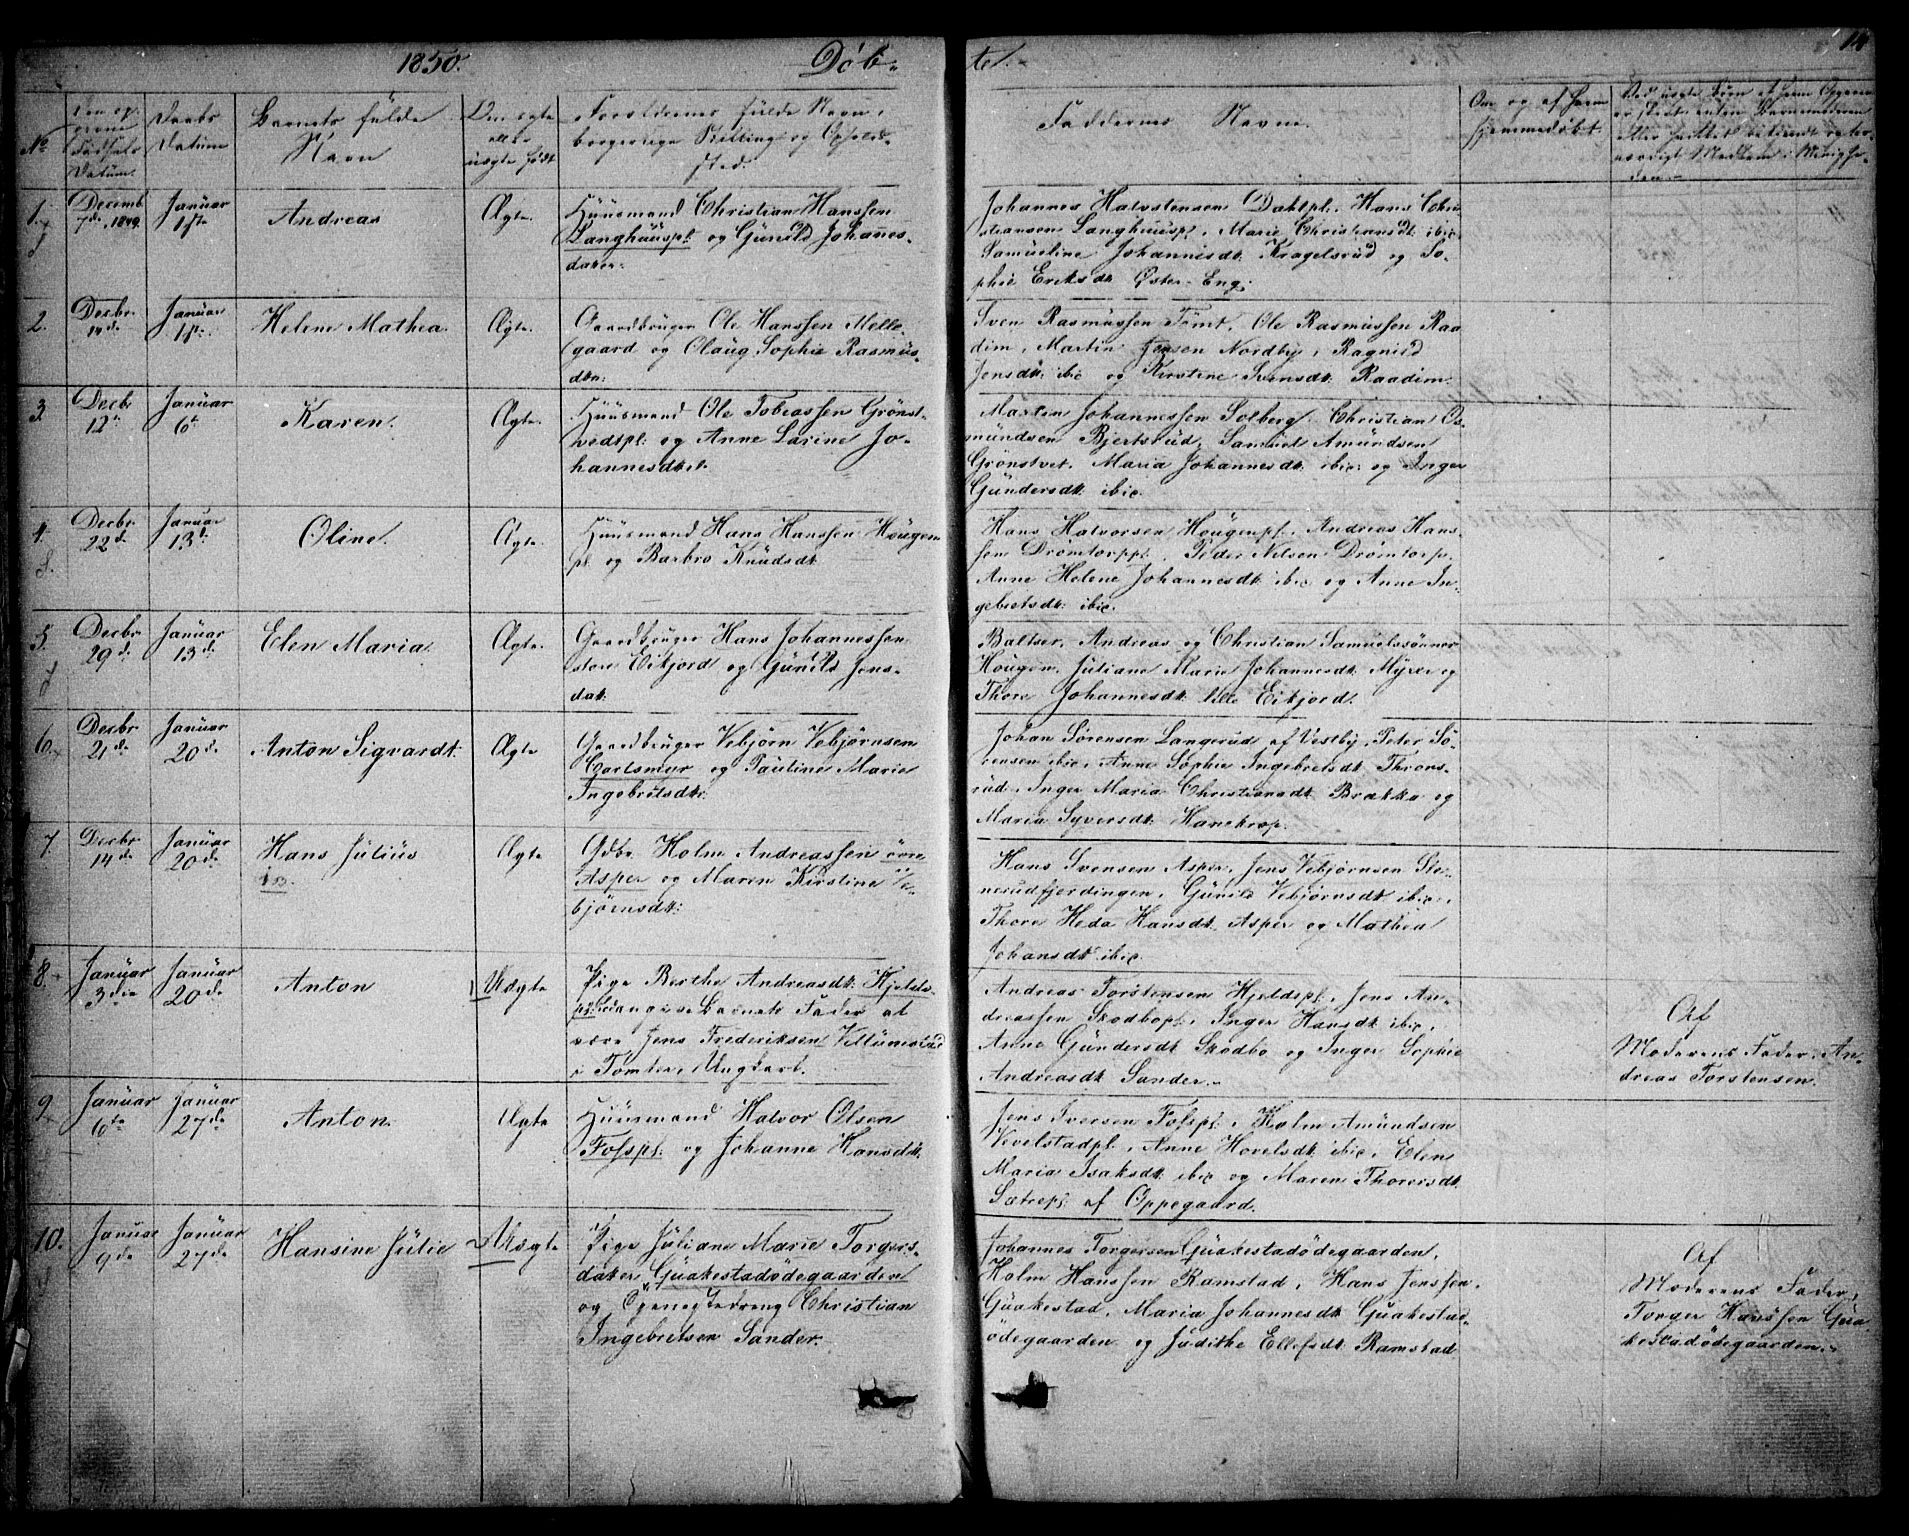 1850.
Døb-
te.
14
No
Den op-
givne
Fødsels
Datum.
Daabs
Datum
Barnets fulde
Navn
Om egte
eller
uegte født
Forældrenes fulde Navn,
borgerlige Stilling og Opholds-
sted.
Faddernes Navne.
Om og af hvem
hjemmedøbt.
1.
Decemb
7de 1849.
Januar
1ste
Andreas
Ægte.
Huusmand Christian Hanssen
Langhuuspl: og Gunild Johannes-
dater:
Johannes Halvorsen Dahlpl., Hans Chri-
stiansen Langhuuspl., Marie Christiansdt: ibid
Samueline Johannisdt: Kragelsrud og So-
phie Eriksdt: Øster-Eng.
2.
Decbr
14de
Januar
1ste
Helene Mathea.
Ægte.
Gaardbruger Ole Hanssen Melle-
gaard og Olaug Sophie Rasmus-
dtr:
Sven Rasmussen Tomt, Ole Rasmussen Raa-
dim, Martin Jensen Nordby, Ragnild
Jensdt: ibid og Kirstine Svensdt: Raadim.
3.
Decbr
12te
Januar
6te
Karen.
Ægte.
Huusmand Ole Tobiassen Grønst-
vedtpl: og Anne Larine Jo-
hannesdtr.
Martin Johannessen Solberg, Christian Os-
mundsen Bjertsrud, Samuel Amundsen
Grønstvet, Maria Johannesdt: ibid: og Inger
Gundersdt: ibid.
4.
Decbr
22de
Januar
13de
Oline.
Ægte.
Huusmand Hans Hanssen Hougen-
pl: og Barbro Knudsdt:
Hans Halvorsen Hougenpl., Andreas Hans-
sen Drømtorppl., Peder Nilsen Drømtorp,
Anne Helene Johannesdt: ibid og Anne In-
gebretsdt: ibid.
5.
Decbr
29de
Januar
13de
Elen Maria.
Ægte.
Gaardbruger Hans Johannessen
store Eikjord og Gunild Jens-
dat:
Baltser, Andreas og Christian Samuelssønner
Hougen, Juliane Marie Johannesdt: Myrer og
Thore Johannesdt: lille Eikjord.
6.
Decbr
21de
Januar
20de
Anton Sigvardt.
Ægte
Gaardbruger Vebjørn Vebjørnsen
Carlsmyr og Pauline Marie
Ingebretsdt:
Johan Sørensen Langerud af Vestby, Peter Sø-
rensen ibid, Anne Sophie Ingebretsdt: Throns-
rud, Inger Maria Christiansdt: Brækka og
Maria Syversdt: Hanekrop.
7.
Decbr
14de
Januar
20de
Hans Julius
Ægte
Gdbr. Holm Andreassen øvre
Asper og Maren Kirstine Ve-
bjørnsdt:
Hans Svensen Asper, Jens Vebjørnsen Ste-
nerudfjerdingen, Gunild Vebjørnsdt: ibid,
Thore Heda Hansdt: Asper og Mathea
Johansdt: ibid.
8.
Januar
3die
Januar
20de
Anton
1 Uægte
Pige Berthe Andreasdt: Kjelds-
pl: udlangiver Barnets Fader at
være Jens Frederiksen Villumstad
i Tomter, Ungkarl.
Andreas Torstensen Kjeldspl., Jens An-
dreassen Skodbopl., Inger Hansdt: ibid,
Anne Gundersdt: Skodbo og Inger Sophie
Andreasdt: Sander.-
Af
Moderens Fader, An-
dreas Torstensen.
9.
Januar
6te
Januar
27de
Anton.
Ægte
Huusmand Halvor Olsen
Fosspl: og Johanne Hansdt:
Jens Iversen Fosspl., Holm Amundsen
Vevelstadpl., Anne Hovelsdt: ibid, Elen
Maria Isaksdt: ibid og Maren Thorersdt:
Sætrepl: af Oppegaard.
10.
Januar
9de
Januar
27de
Hansine Julie
2 Uægte
Pige Juliane Marie Torgers-
dater, Guakestadødegaarden
og Tjenestedreng Christian
Ingebretsen Sander.
Johannes Torgersen Guakestadødegaarden,
Holm Hanssen Ramstad, Hans Jenssen
Guakestad, Maria Johannesdt: Guakestad-
ødegaarden og Judithe Ellefsdt: Ramstad
Af
Moderens Fader,
Torger Hanssen Gua-
kestadødegaarden.-